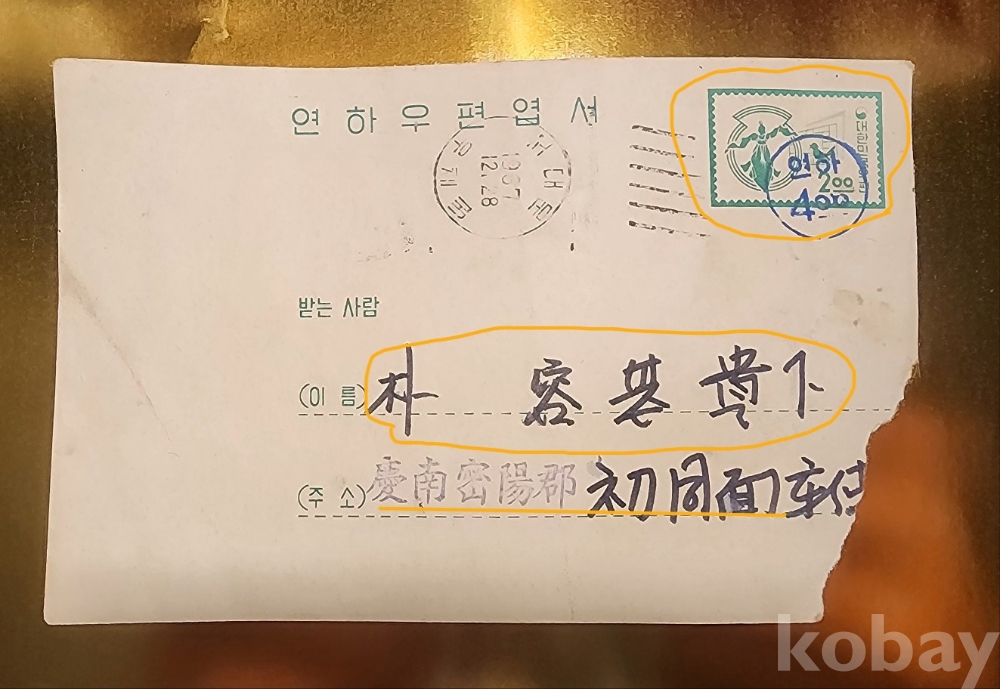 연하우편엽서
서대문
1967
12.28
우체국
대한민국우편
2.00
연하
4.00
받는 사람
(이 름) 朴 容基 貴下
(주 소) 慶南密陽郡 初同面
kobay